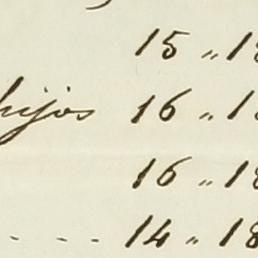 15 " 18
hijos 16 " 1
16 " 18
- - - - 14 " 18